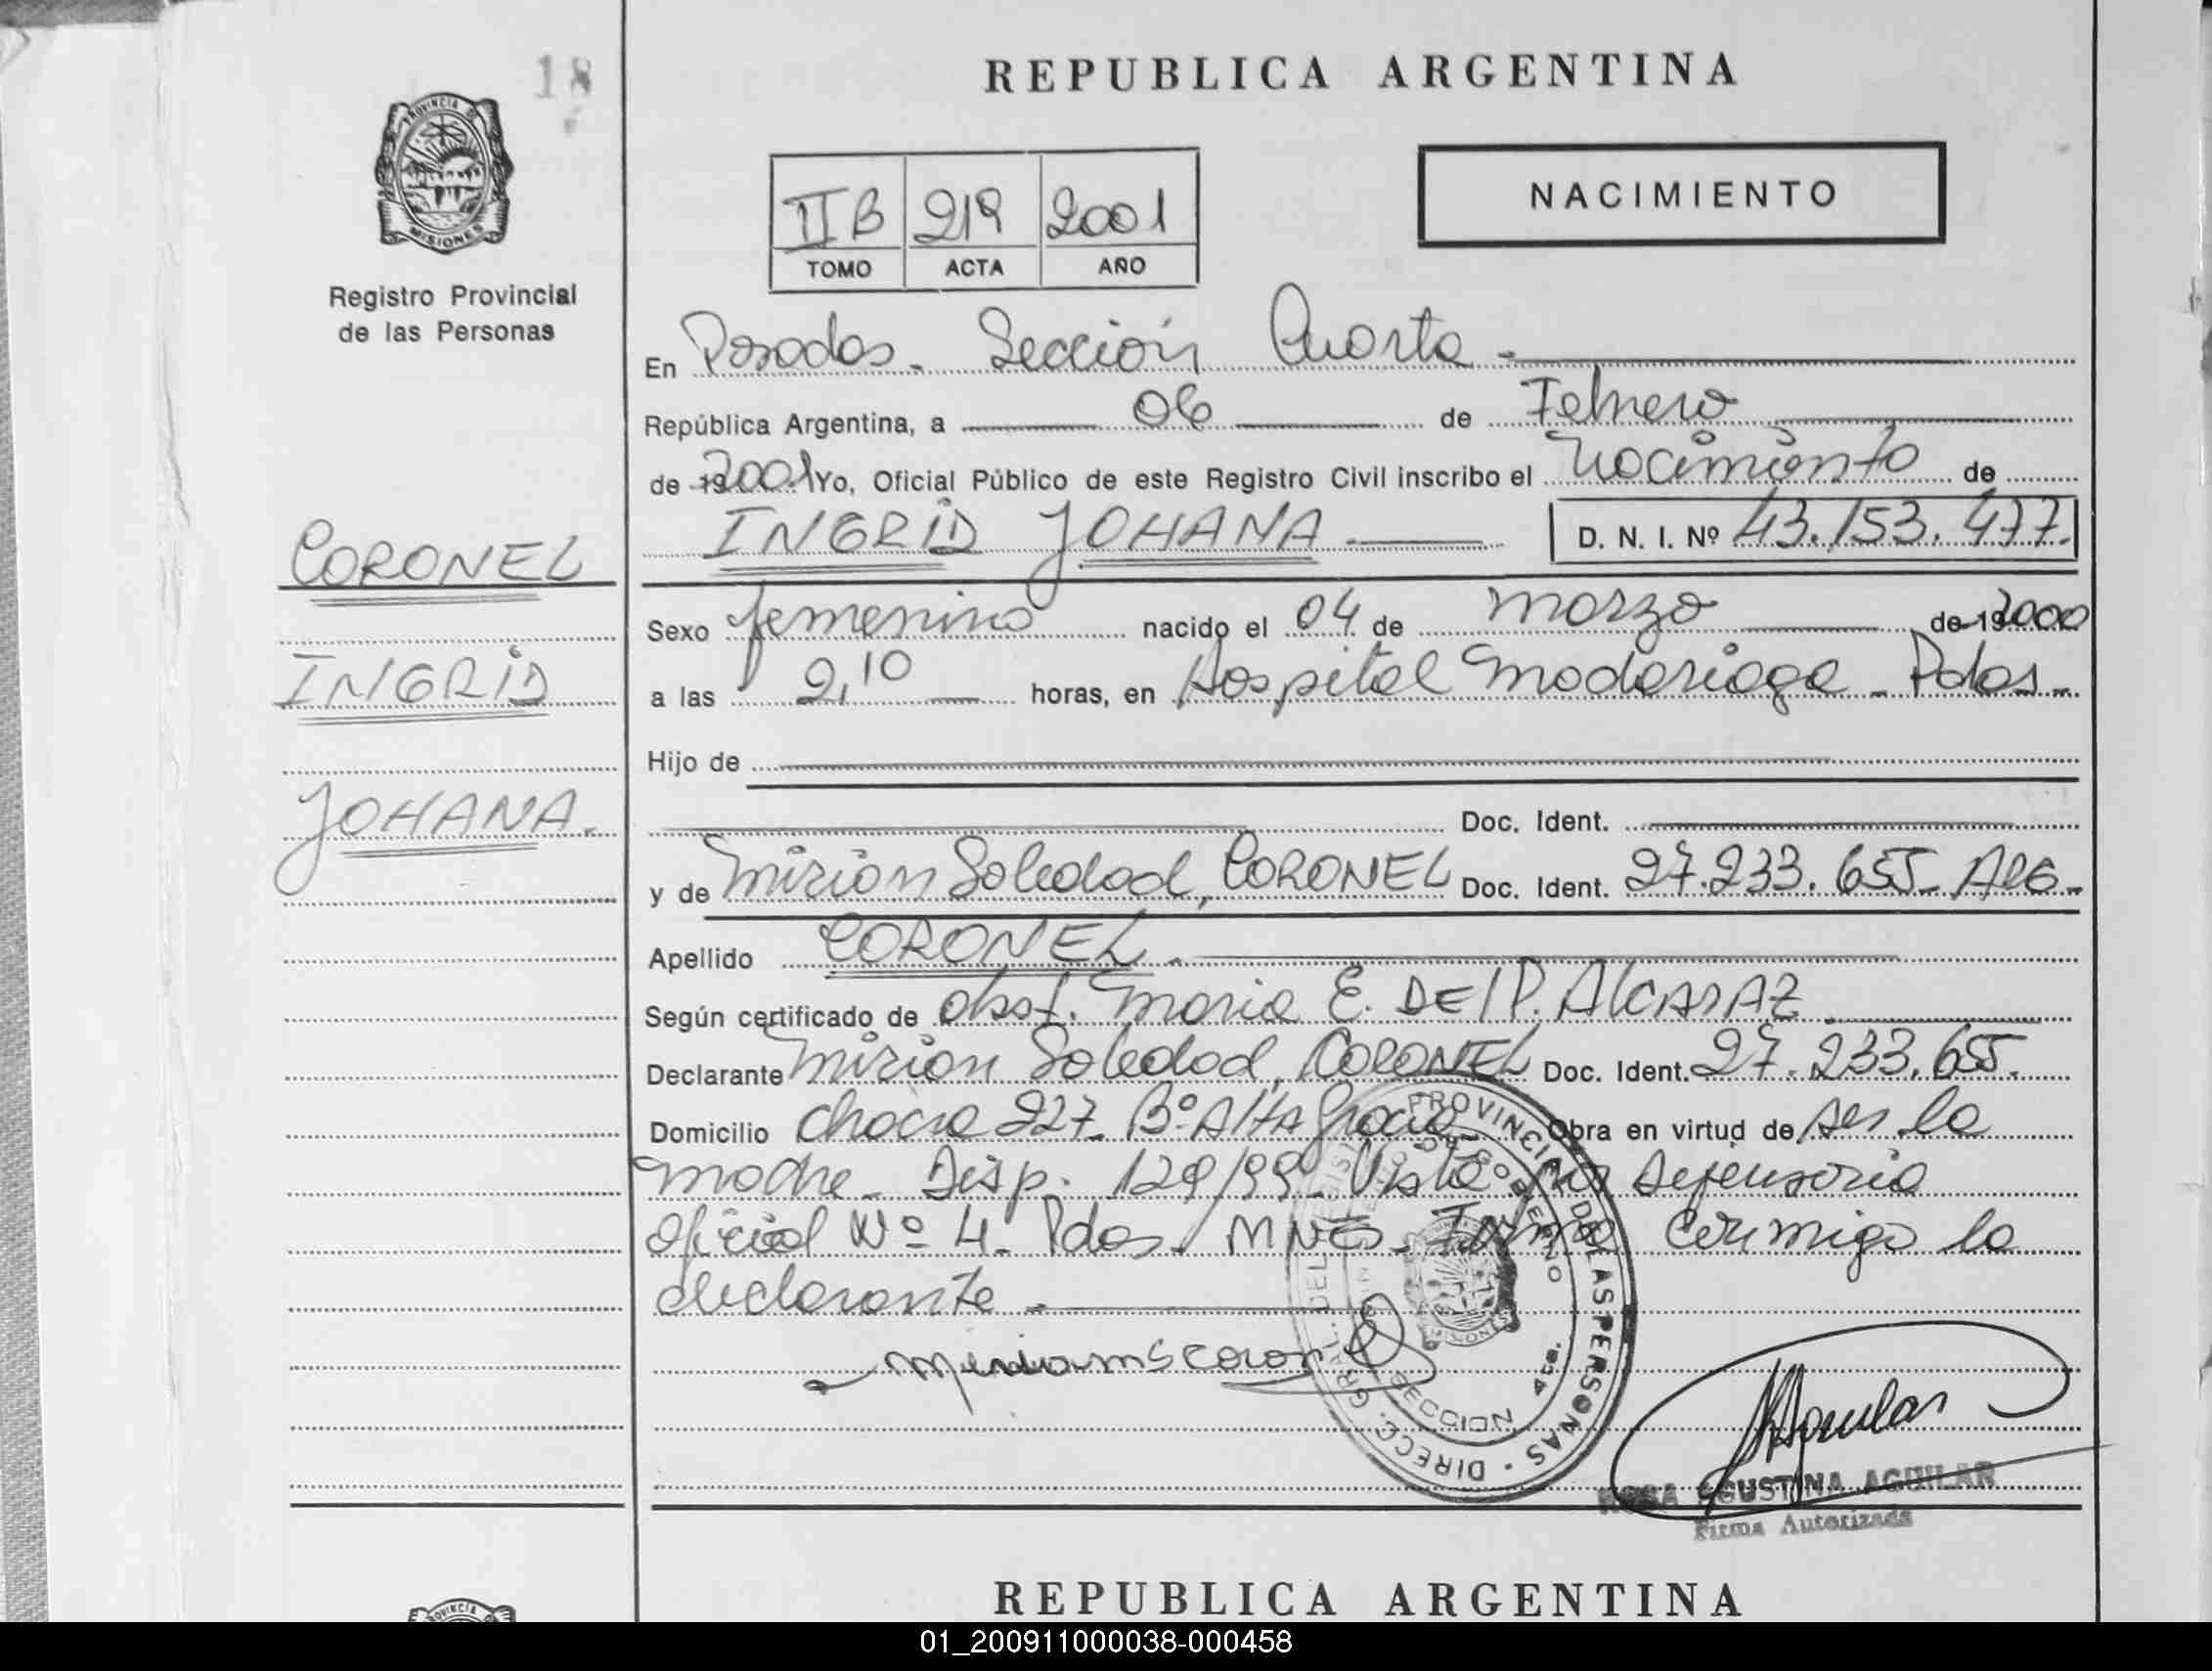 18
REPUBLICA ARGENTINA
PROVINCIA DE
MISIONES
Registro Provincial
de las Personas
II B 219 2001
TOMO ACTA AÑO
NACIMIENTO
En Posadas. Sección Cuarta -
República Argentina, a 06 de Febrero
de 19 2001 Yo, Oficial Público de este Registro Civil inscribo el Nacimiento de
INGRID JOHANA D. N. I. Nº 43.153.477.
CORONEL
INGRID
JOHANA.
Sexo femenino nacido el 04 de marzo de 19 2000
a las 2,10 horas, en Hospital Madariaga - Pdas -
Hijo de
Doc. Ident.
y de Mirian Soledad, CORONEL Doc. Ident. 27.233.655- ARG-
Apellido CORONEL.
Según certificado de obst. Maria E. DEl P. AlCARAZ
Declarante Mirian Soledad, CORONEL Doc. Ident. 27.233.655.
Domicilio Chacra 227- Bº Alta Gracia- Obra en virtud de ser la
madre - Disp. 129/99- Vista por Defensoria
Oficial Nº 4- Pdas. MNES. Firma conmigo la
declarante -
MiriamS Coronel
PROVINCIAL DE LAS PERSONAS - DIRECC. GRAL. DEL
GOBIERNO
MISIONES
SECCION 4ta.
Aguilar
ROSA AGUSTINA AGUILAR
Firma Autorizada
PROVINCIA
REPUBLICA ARGENTINA
01_200911000038-000458